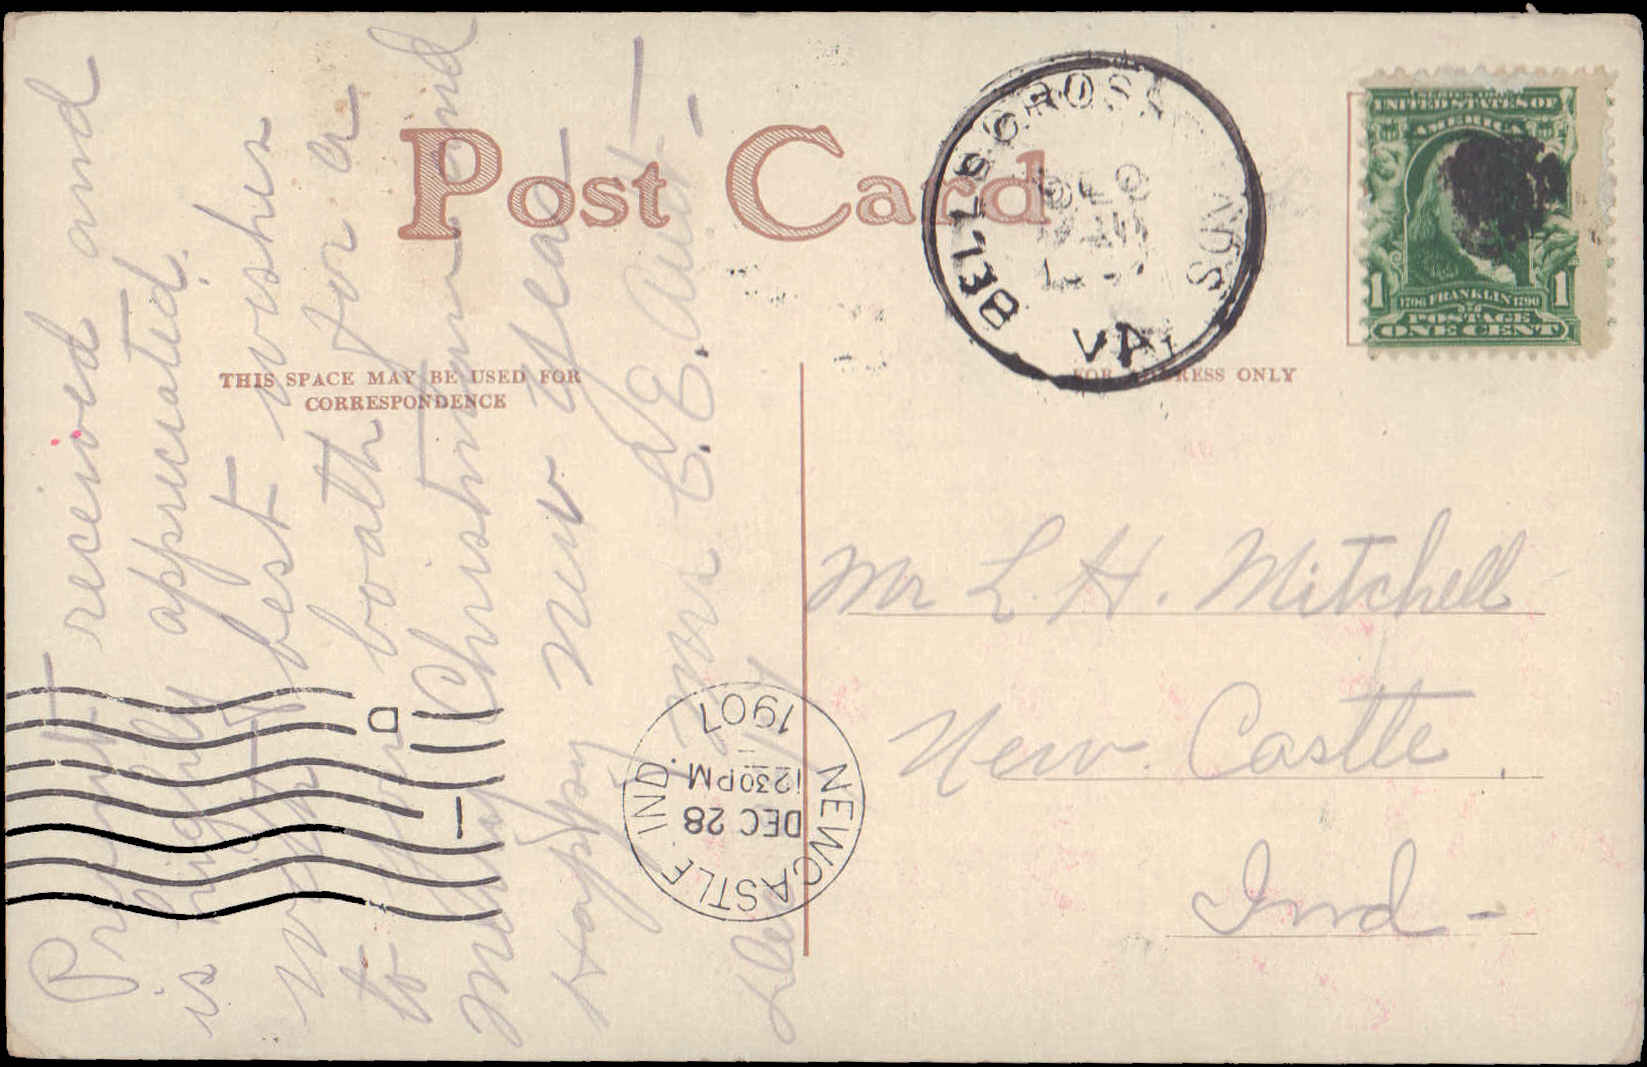 Post Card
THIS SPACE MAY BE USED FOR
CORRESPONDENCE
FOR ADDRESS ONLY
Present received and
is highly appreciated.
with best wishes
to boath for a
Merry Christmas and
Happy New Year
C. E. Ault
Mr L. H. Mitchell
New Castle
Ind -
BELLS CROSS NDS
VA.
SERIES 1902
UNITED STATES OF
AMERICA
1706 FRANKLIN 1790
1 1
POSTAGE
ONE CENT
NEWCASTLE, IND.
DEC 28
12 30 PM
1907
D
1